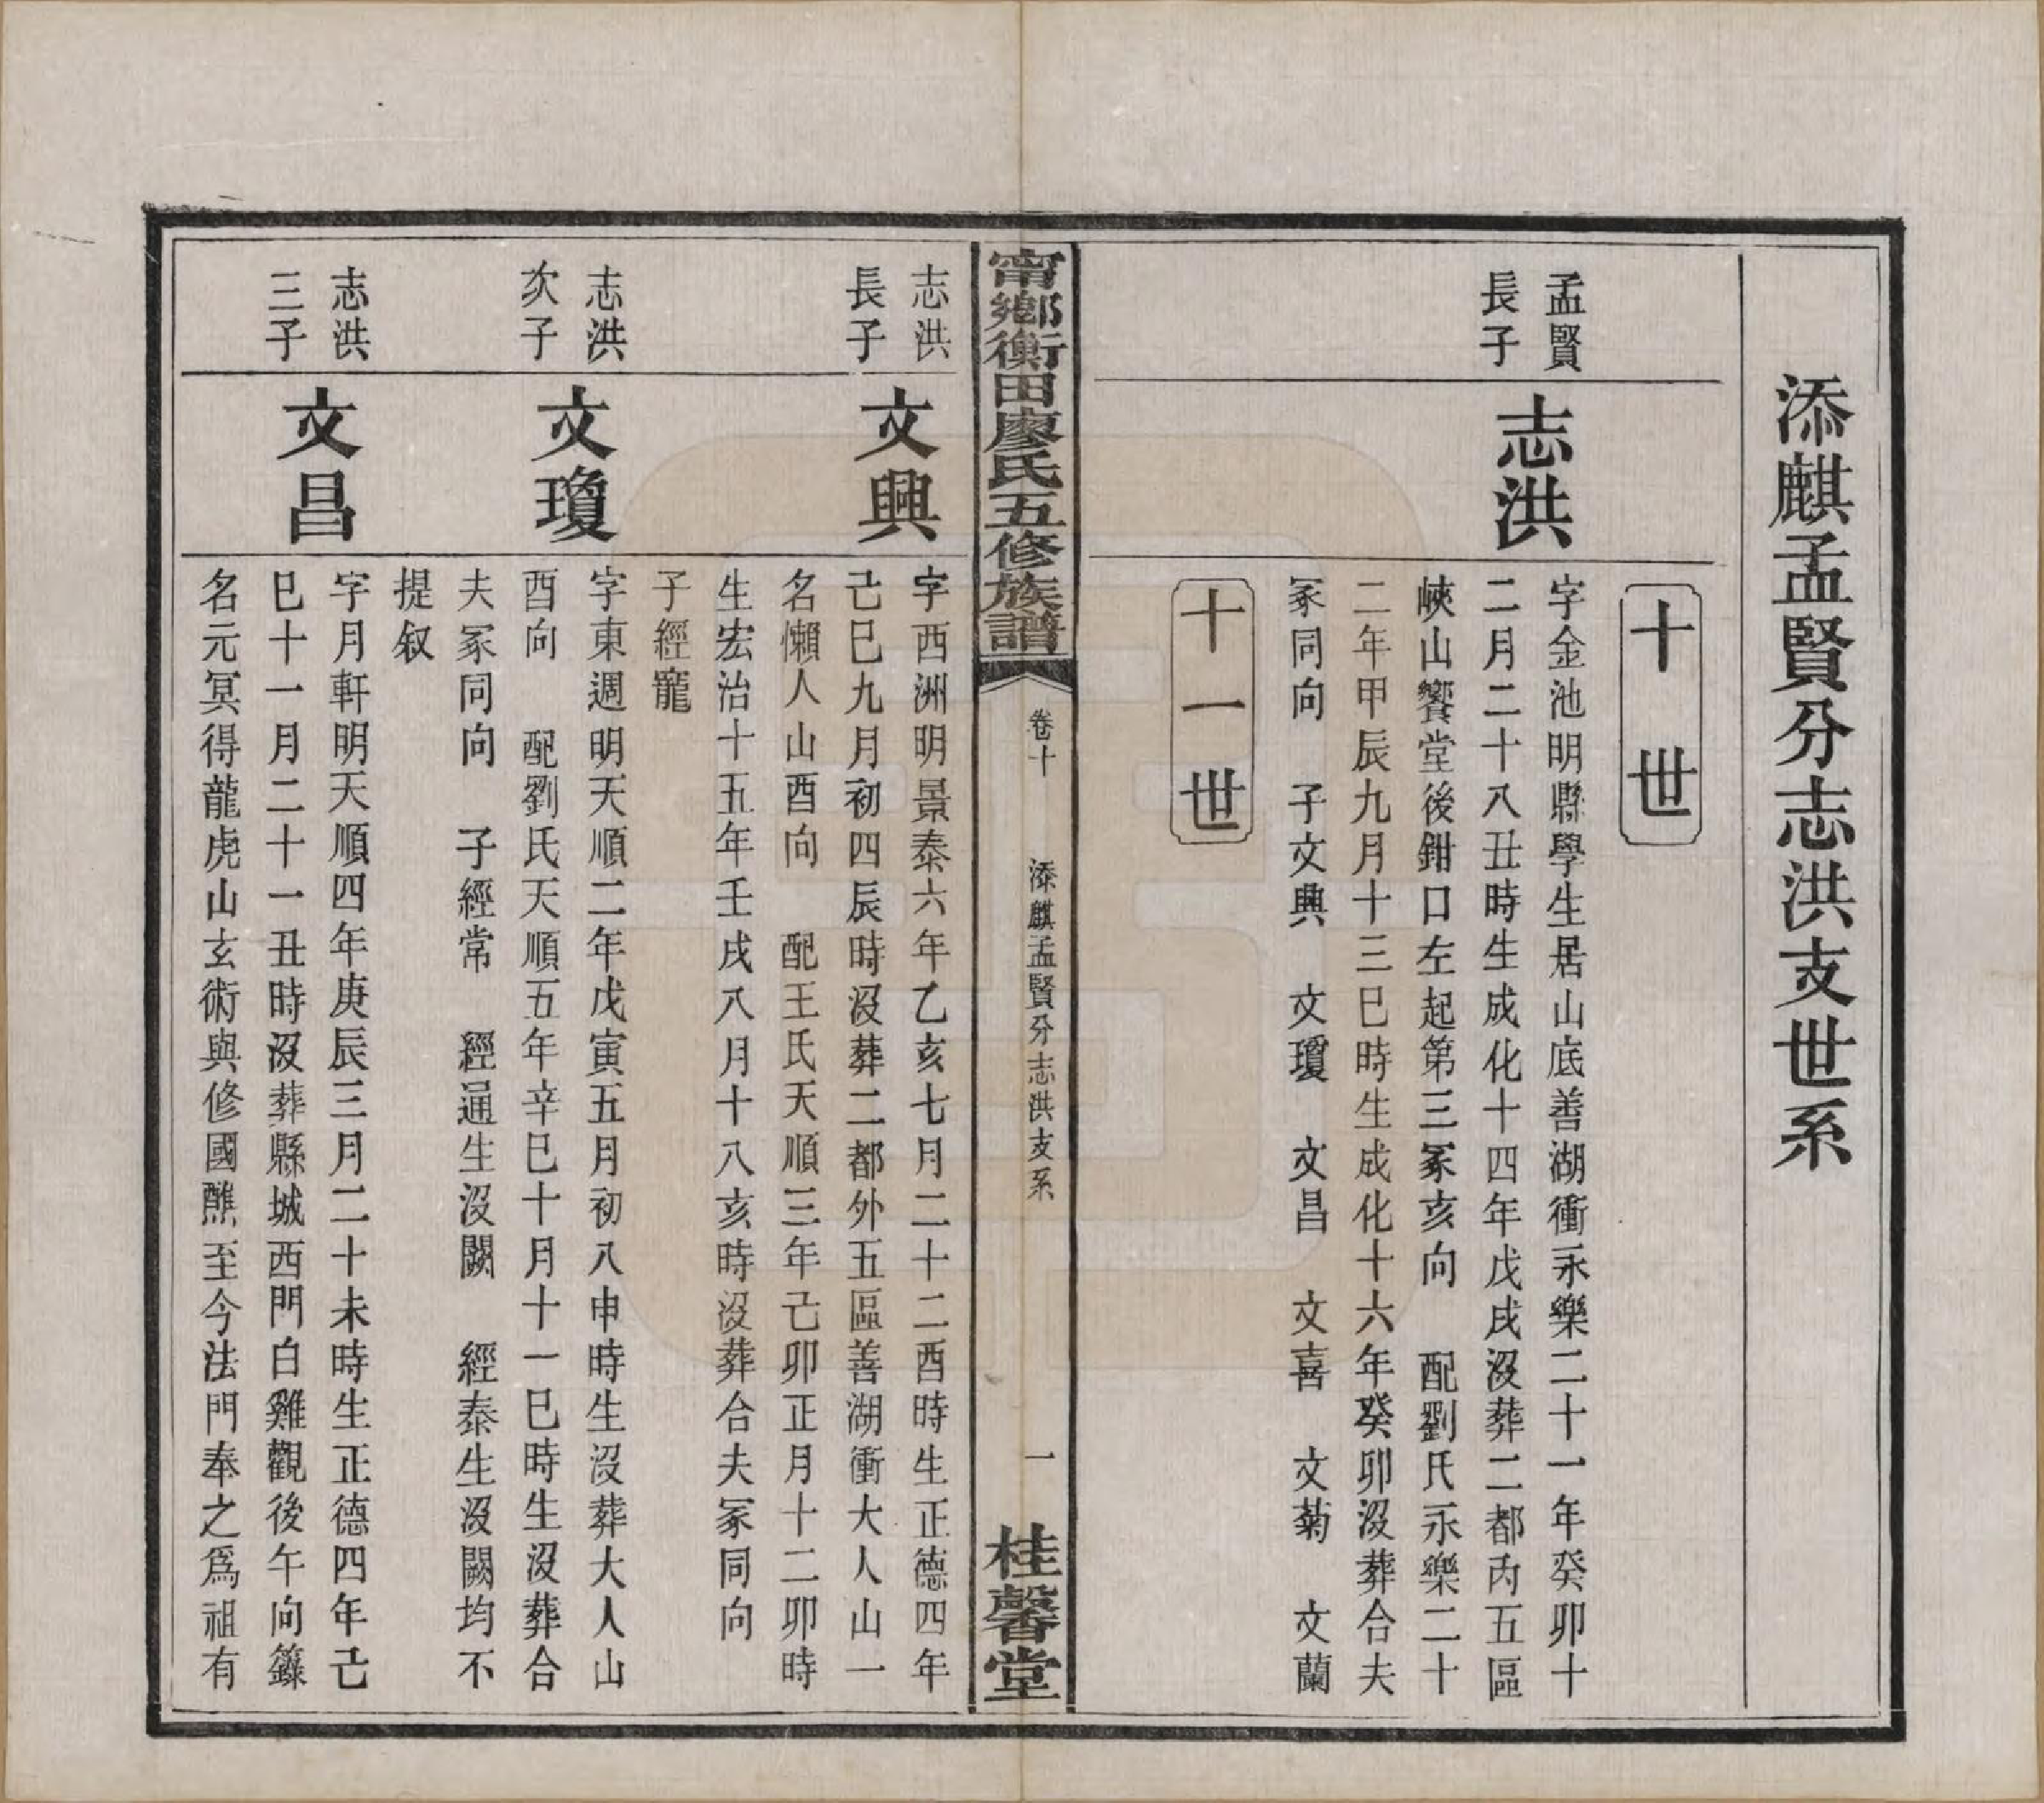 添麒孟賢分志洪支世系
十世
孟賢
長子
志洪
字金池明縣學生居山底善湖衝永樂二十一年癸卯十
二月二十八丑時生成化十四年戊戌沒葬二都丙五區
峽山饗堂後鉗口左起第三冢亥向　配劉氏永樂二十
二年甲辰九月十三巳時生成化十六年癸卯沒葬合夫
冢同向　子文興　文瓊　文昌　文喜　文菊　文蘭
十一世
甯鄉衡田廖氏五修族譜
卷十
添麒孟賢分志洪支系
一
桂馨堂
志洪
長子
文興
字西洲明景泰六年乙亥七月二十二酉時生正德四年
己巳九月初四辰時沒葬二都外五區善湖衝大人山一
名懶人山酉向　配王氏天順三年己卯正月十二卯時
生宏治十五年壬戌八月十八亥時沒葬合夫冢同向
子經寵
志洪
次子
文瓊
字東週明天順二年戊寅五月初八申時生沒葬大人山
酉向　配劉氏天順五年辛巳十月十一巳時生沒葬合
夫冢同向　子經常　經通生沒闕　經泰生沒闕均不
提叙
志洪
三子
文昌
字月軒明天順四年庚辰三月二十未時生正德四年己
巳十一月二十一丑時沒葬縣城西門白雞觀後午向籙
名元冥得龍虎山玄術與修國醮至今法門奉之爲祖有